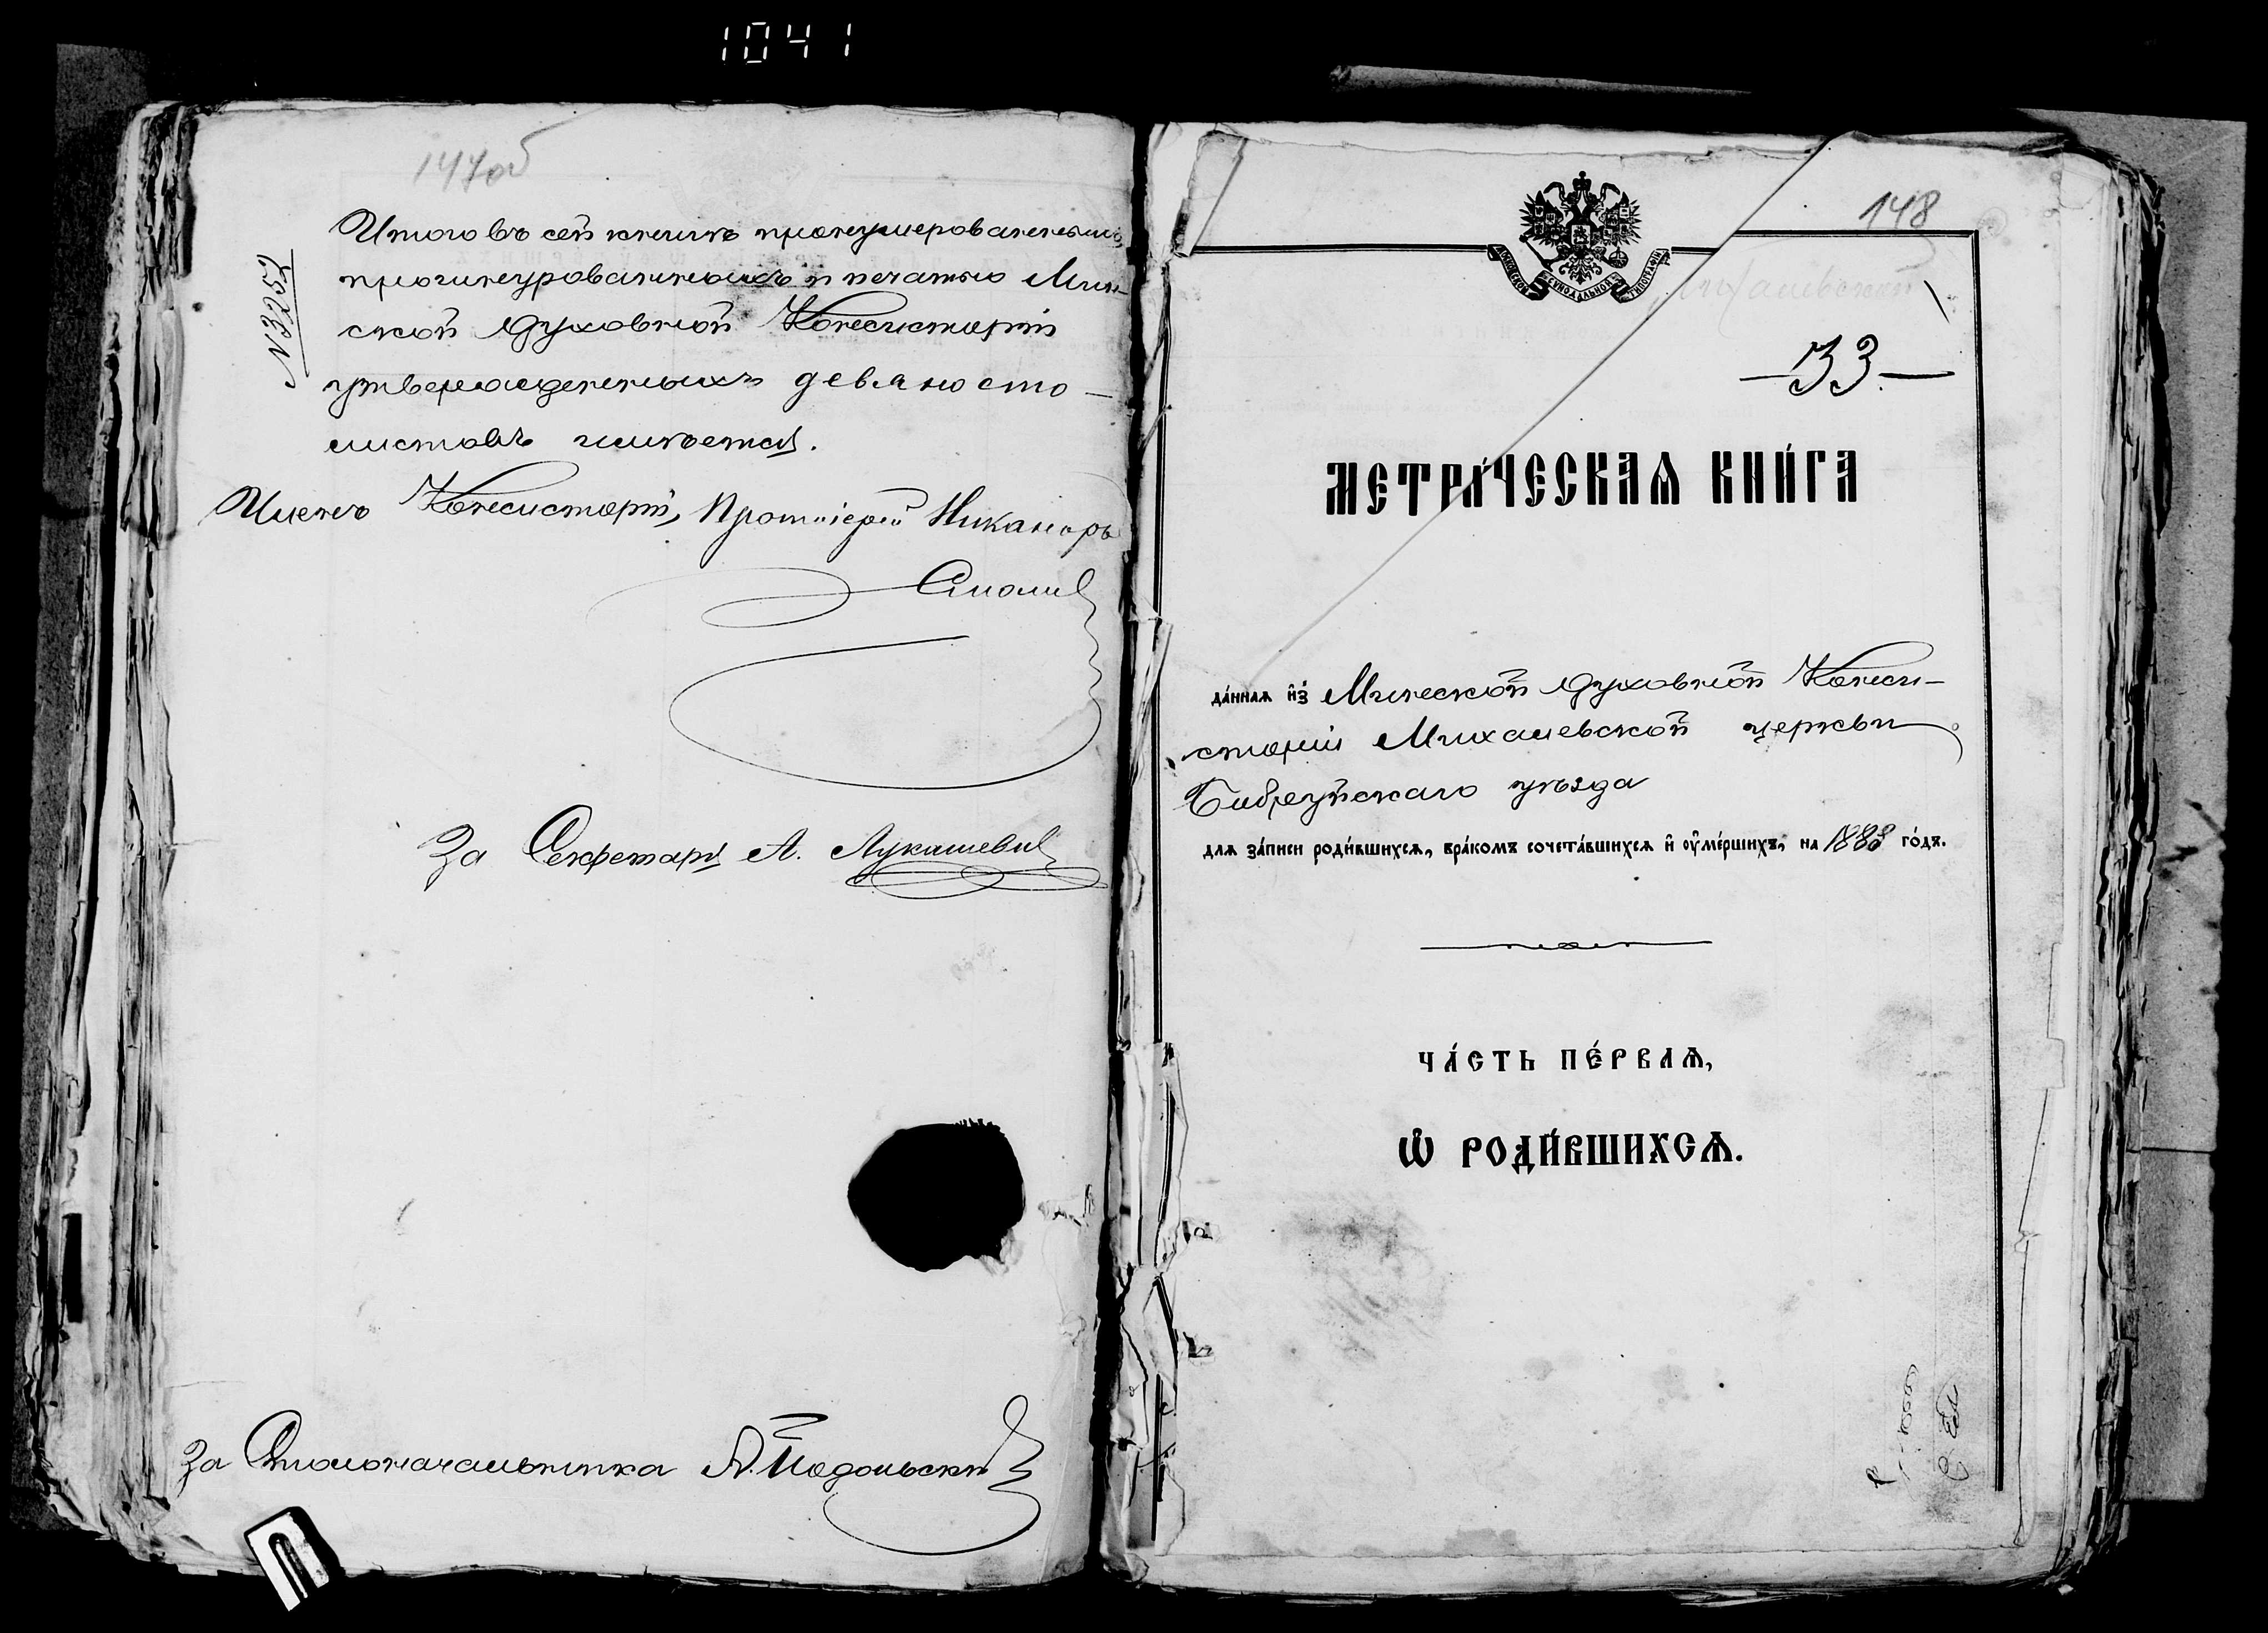 1041
147об
№ 3252
Итого въ сей книгѣ пронумерованныхъ,
прошнурованныхъ и печатью Мин-
ской Духовной Консисторіи
утвержденныхъ девяносто —
листовъ имѣется.
Членъ Консисторіи, Протоіерей Никаноръ
Смолич
За Секретаря А. Лукашевич
За Столоначальника А. Подольскій
148
Михалевской
МОСКОВСКОЙ СѴНОДАЛЬНОЙ ТИПОГРАФІИ
— 33. —
МЕТРИ́ЧЕСКАѦ КНИ́ГА
да́ннаѧ и҆з̾ Минской Духовной Конси-
сторіи Михалевской церкви
Бобруйскаго уѣзда
длѧ за́писи роди́вшихсѧ, бра́комъ сочета́вшихсѧ и҆ оу҆ме́ршихъ, на 1888 го́дъ.
ЧА́СТЬ ПЕ́РВАѦ,
Ѡ҆ РОДИ́ВШИХСѦ.